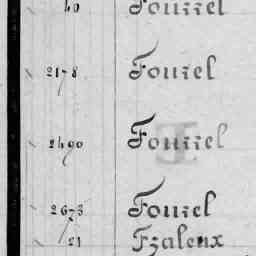 40 Fourrel
2178 Fouriel
2490 Fouriel
2673 Fouriel
21 Fraleux